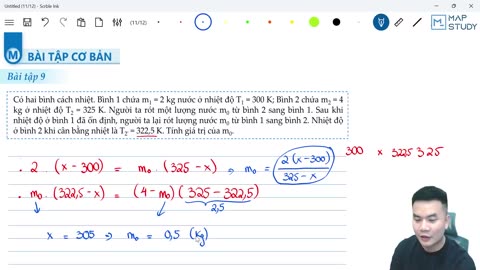 Untitled (11/12) - Scrble Ink
(11/12)
MAP STUDY
M BÀI TẬP CƠ BẢN
Bài tập 9
Có hai bình cách nhiệt. Bình 1 chứa m₁ = 2 kg nước ở nhiệt độ T₁ = 300 K; Bình 2 chứa m₂ = 4
kg ở nhiệt độ T₂ = 325 K. Người ta rót một lượng nước m₀ từ bình 2 sang bình 1. Sau khi
nhiệt độ ở bình 1 đã ổn định, người ta lại rót lượng nước m₀ từ bình 1 sang bình 2. Nhiệt độ
ở bình 2 khi cân bằng nhiệt là T₂' = 322,5 K. Tính giá trị của m₀.
300 x 3225 325
• 2 (x-300) = m₀ (325-x) ⇒ m₀ = 2(x-300) / 325-x
• m₀ (322,5-x) = (4-m₀) (325-322,5)
2,5
x = 305 ⇒ m₀ = 0,5 (kg)